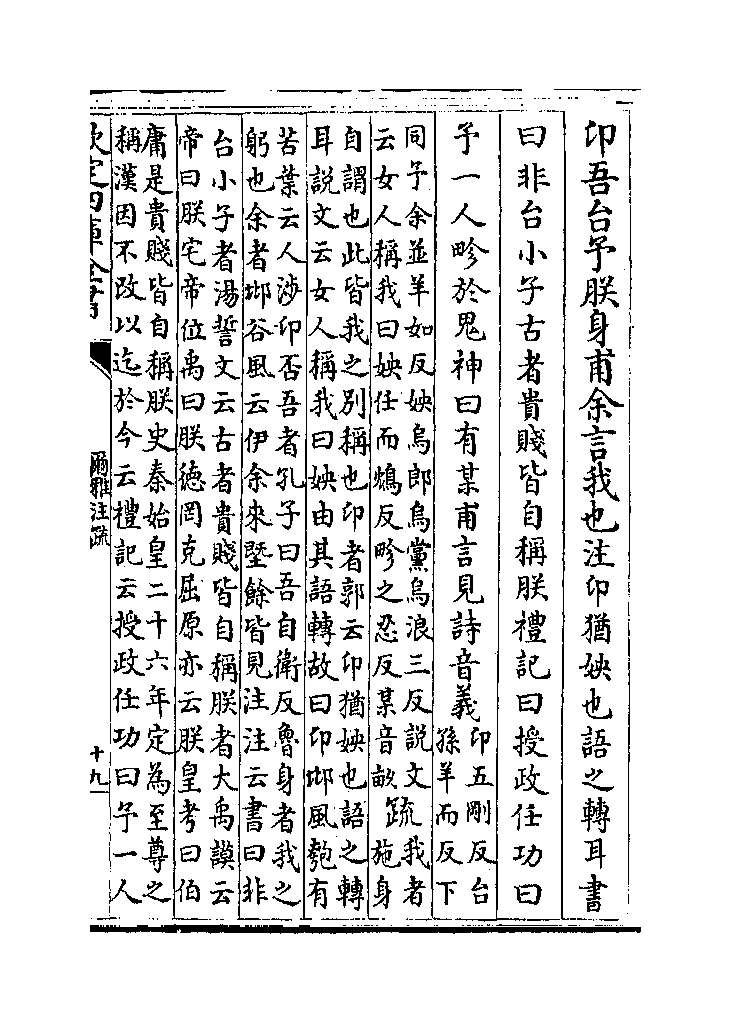 卬吾台予朕身甫余言我也注卬猶姎也語之轉耳書
曰非台小子古者貴賤皆自稱朕禮記曰授政任功曰
予一人畛於鬼神曰有某甫言見詩音義
卬五剛反台
孫羊而反下
同予余並羊如反姎烏郎烏黨烏浪三反說文
云女人稱我曰姎任而鴆反畛之忍反某音畝
疏
我者
施身
自謂也此皆我之别稱也卬者郭云卬猶姎也語之轉
耳說文云女人稱我曰姎由其語轉故曰卬邶風匏有
苦葉云人涉卬否吾者孔子曰吾自衛反魯身者我之
躬也余者邶谷風云伊余來墍餘皆見注注云書曰非
台小子者湯誓文云古者貴賤皆自稱朕者大禹謨云
帝曰朕宅帝位禹曰朕德罔克屈原亦云朕皇考曰伯
庸是貴賤皆自稱朕史秦始皇二十六年定為至尊之
稱漢因不改以迄於今云禮記云授政任功曰予一人
欽定四庫全書
爾雅注疏
十九